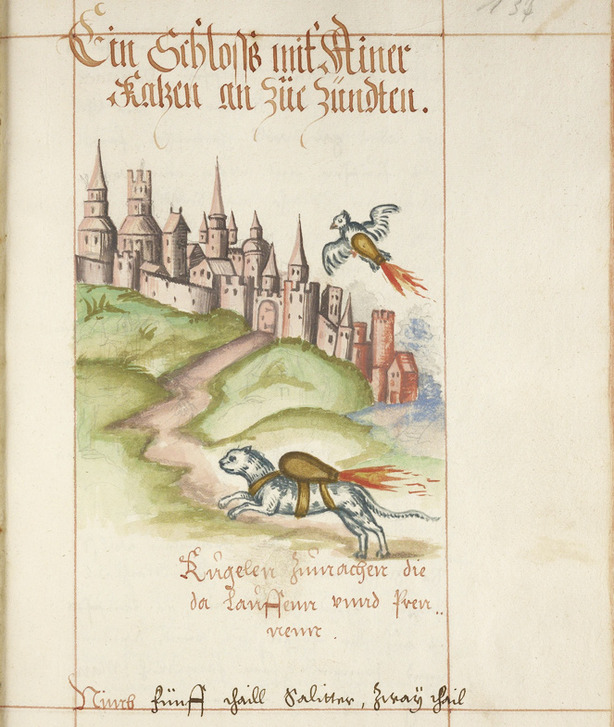 134
Ein Schloss mit Ainer
Katzen an züe zündten.
Kugelen zumachen die
da Lauffenn vnnd Pren„
nenn.
Nimb fünff thaill Salitter, zway thail